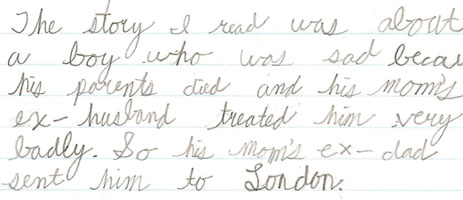 The story I read was about
a boy who was sad becau
his parents died and his mom's
ex-husband treated him very
badly. So his mom's ex-dad
sent him to London.